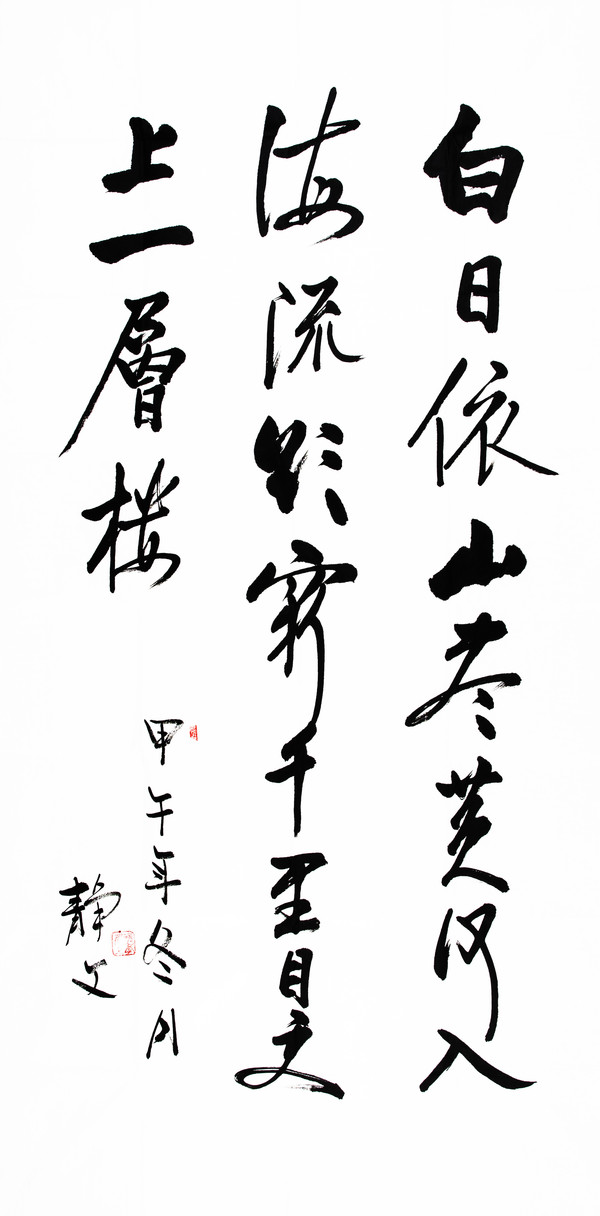 白日依山尽黄河入
海流欲窮千里目更
上一層楼
甲午年冬月
静文